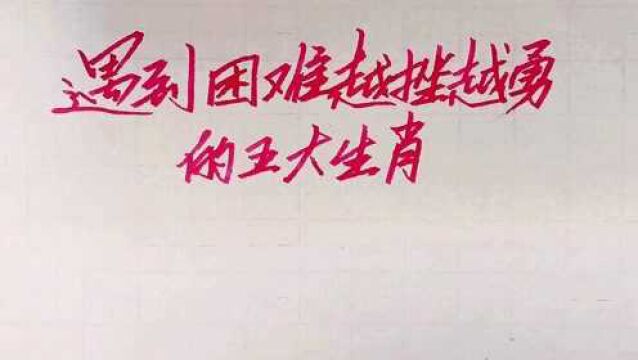 遇到困难越挫越勇
的五大生肖